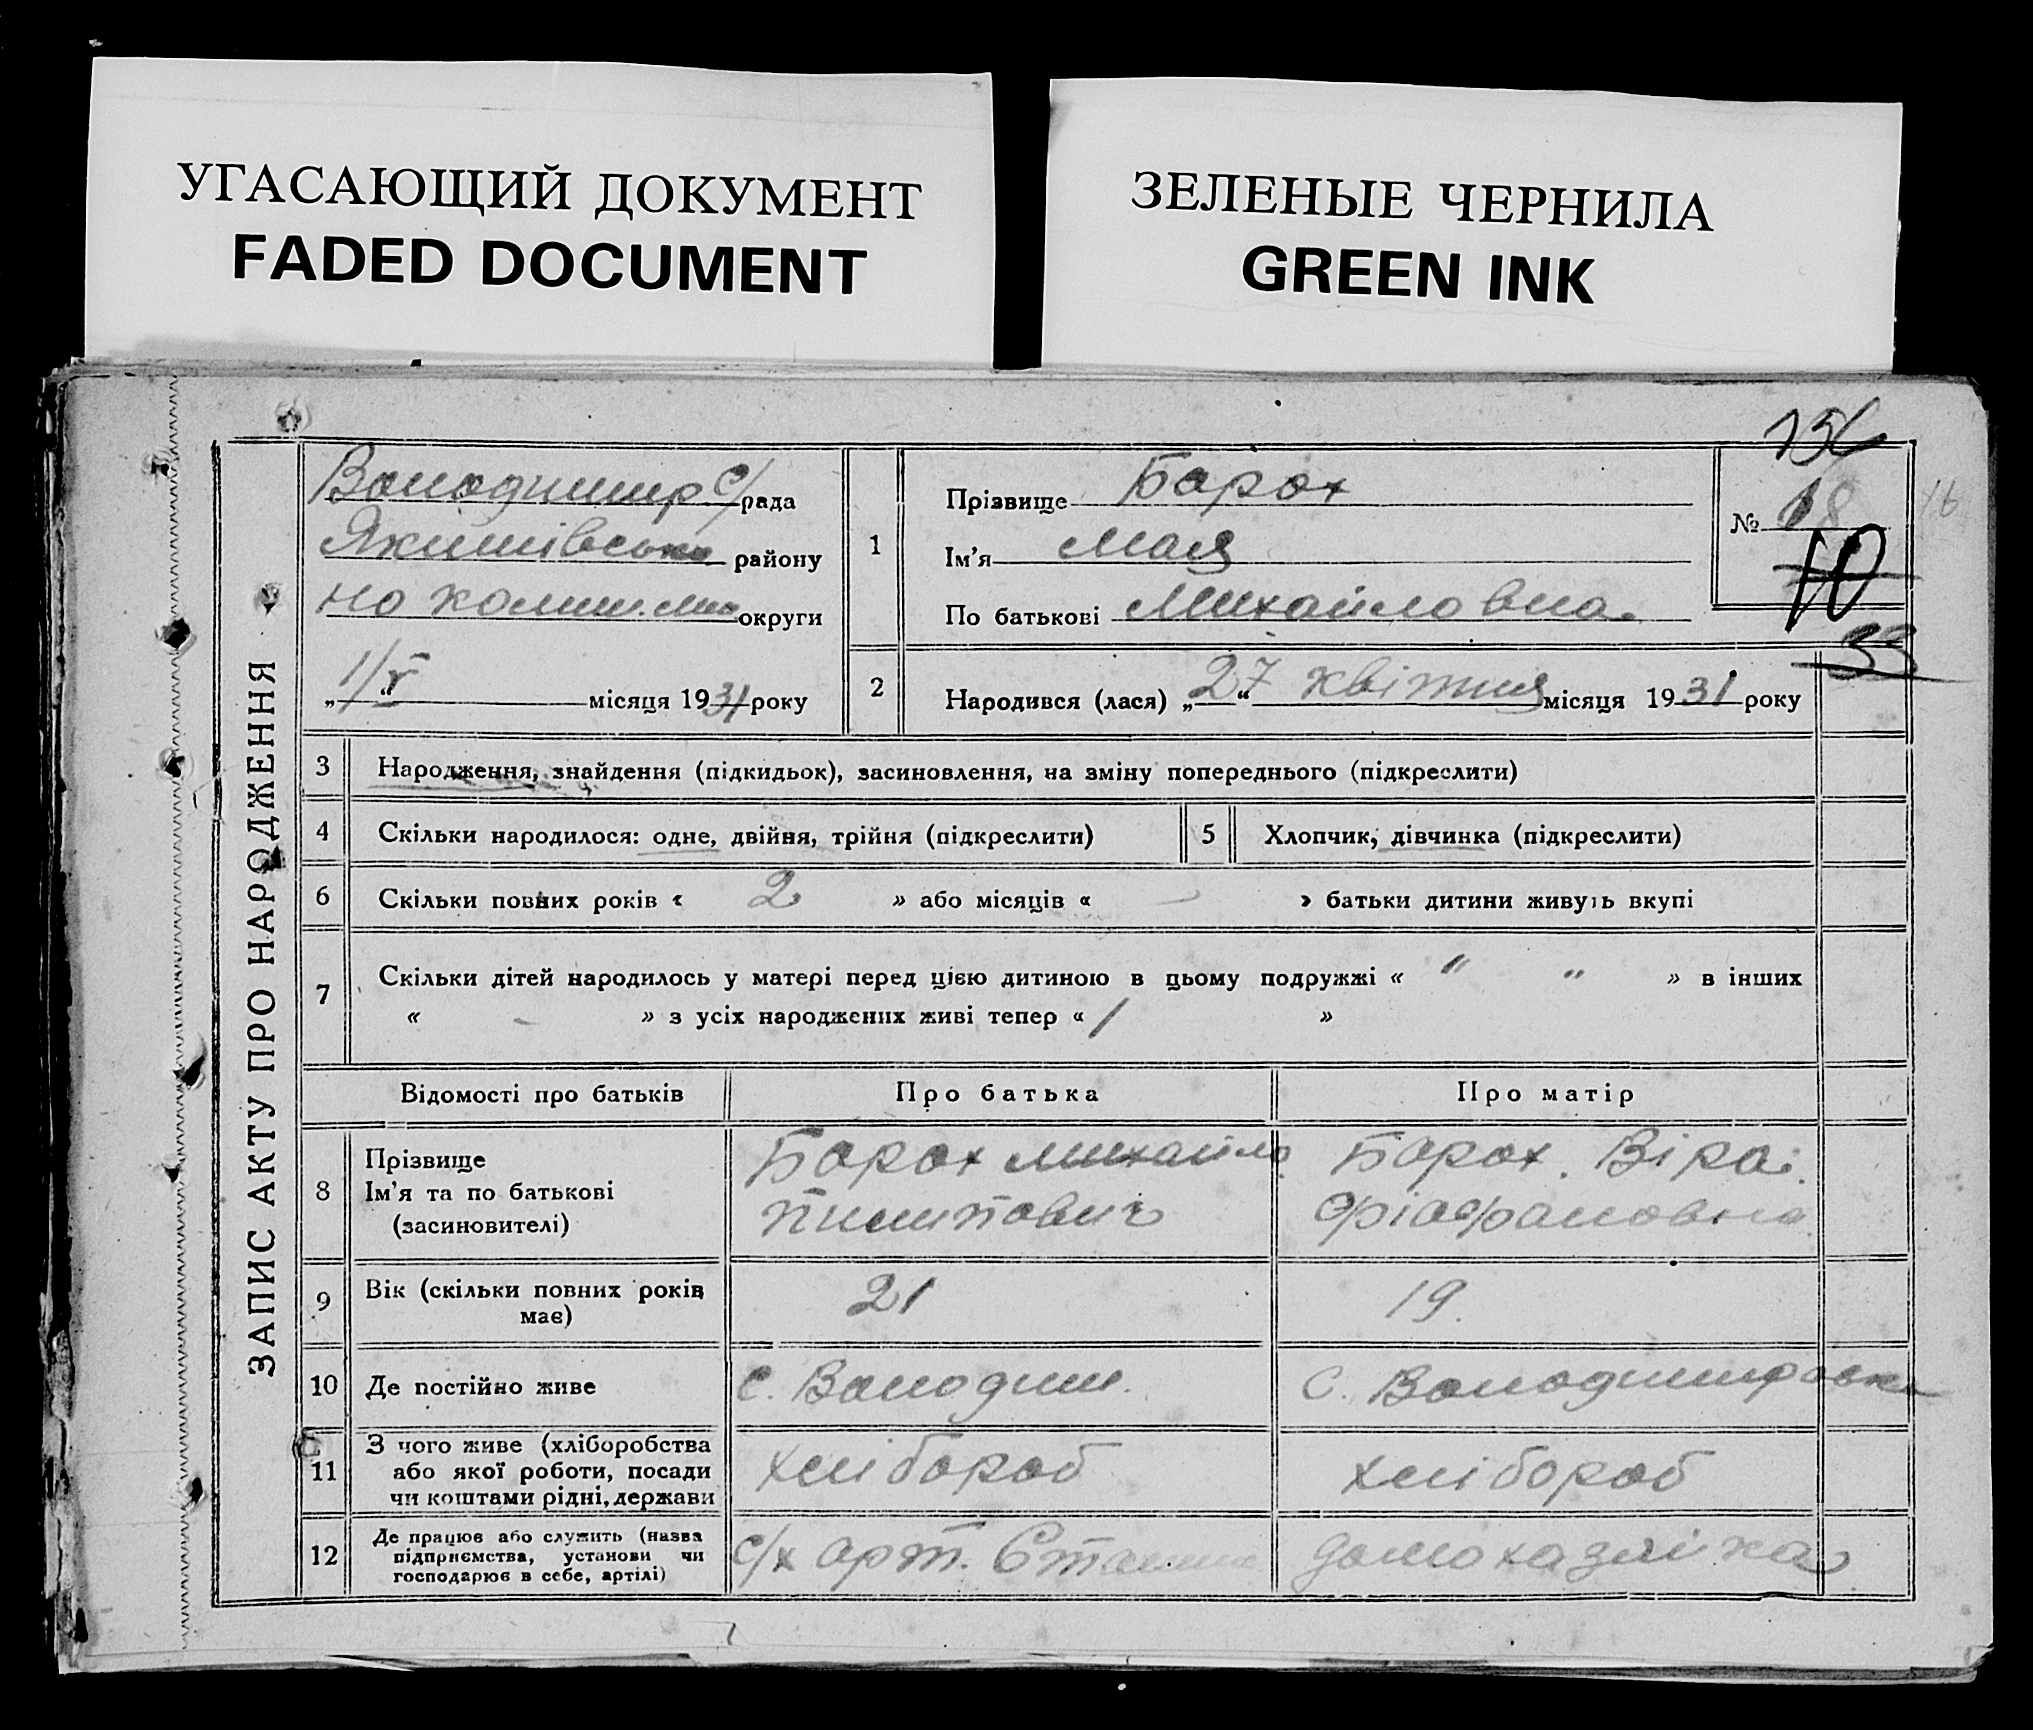 УГАСАЮЩИЙ ДОКУМЕНТ
FADED DOCUMENT
ЗЕЛЕНЫЕ ЧЕРНИЛА
GREEN INK
ЗАПИС АКТУ ПРО НАРОДЖЕННЯ
Володимир с/рада
Якимівсько району
округи
„1/V“ місяця 1931 року
1
Прізвище Барох
Ім’я Мая
По батькові Михайловна
№ 18
10
33
16
2
Народився (лася) „27“ квітня місяця 1931 року
3 Народження, знайдення (підкидьок), засиновлення, на зміну попереднього (підкреслити)
4 Скільки народилося: одне, двійня, трійня (підкреслити)
5 Хлопчик, дівчинка (підкреслити)
6 Скільки повних років « 2 » або місяців « – » батьки дитини живуть вкупі
7 Скільки дітей народилось у матері перед цією дитиною в цьому подружжі « " " » в інших
« - » з усіх народжених живі тепер « 1 »
Відомості про батьків
Про батька
Про матір
8
Прізвище
Ім’я та по батькові
(засиновителі)
Барох Михайло
Пилипович
Барох Віра
9
Вік (скільки повних років
має)
21
19.
10 Де постійно живе
с. Володим.
с. Володимировка
11
З чого живе (хліборобства
або якої роботи, посади
чи коштами рідні, держави
хлібороб
хлібороб
12
Де працює або служить (назва
підприємства, установи чи
господарює в себе, артілі)
с/х арт.
домохазяйка